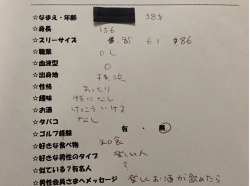 ☆なまえ・年齢 38才
☆身長 156
☆スリーサイズ 85 61 86
☆職業 OL
☆血液型 O
☆出身地 横浜
☆性格 おっとり
☆趣味 特になし
☆お酒 けっこういける
☆タバコ なし
☆ゴルフ経験 有・無
☆好きな食べ物 和食
☆好きな男性のタイプ 楽しい人
☆似ている?有名人 ?
☆男性会員さまへメッセージ 楽しくお酒が飲めたら